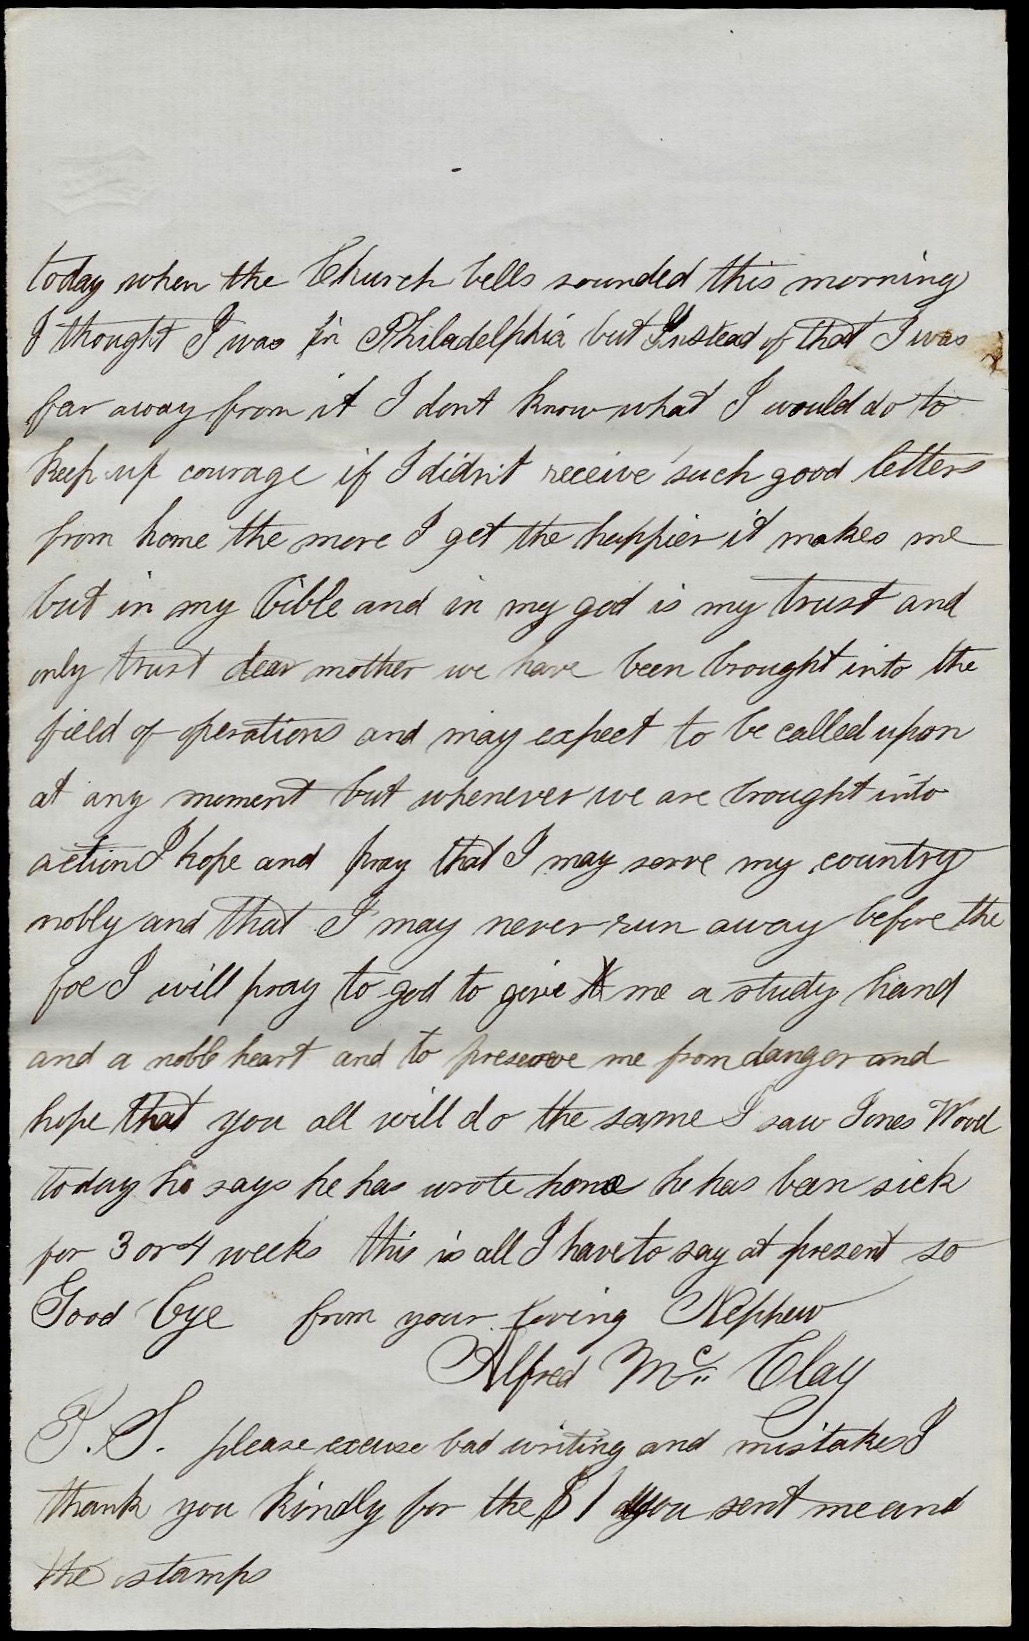 today when the Church bells sounded this morning
I thought I was in Philadelphia but Instead of that I was
far away from it I dont know what I would do to
keep up courage if I didn't receive such good letters
from home the more I get the happier it makes me
but in my bible and in my god is my trust and
only trust dear mother we have been brought into the
field of operations and may expect to be called upon
at any moment but whenever we are brought into
action I hope and pray that I may serve my country
nobly and that I may never run away before the
foe I will pray to god to give me a study hand
and a noble heart and to preserve me from danger and
hope that you all will do the same I saw Jones Wood
today he says he has wrote home he has ben sick
for 3 or 4 weeks this is all I have to say at present so
Good bye from your loving Nephew
Alfred Mc Clay
P.S. please excuse bad writing and mistakes I
thank you kindly for the $1 you sent me and
the stamps